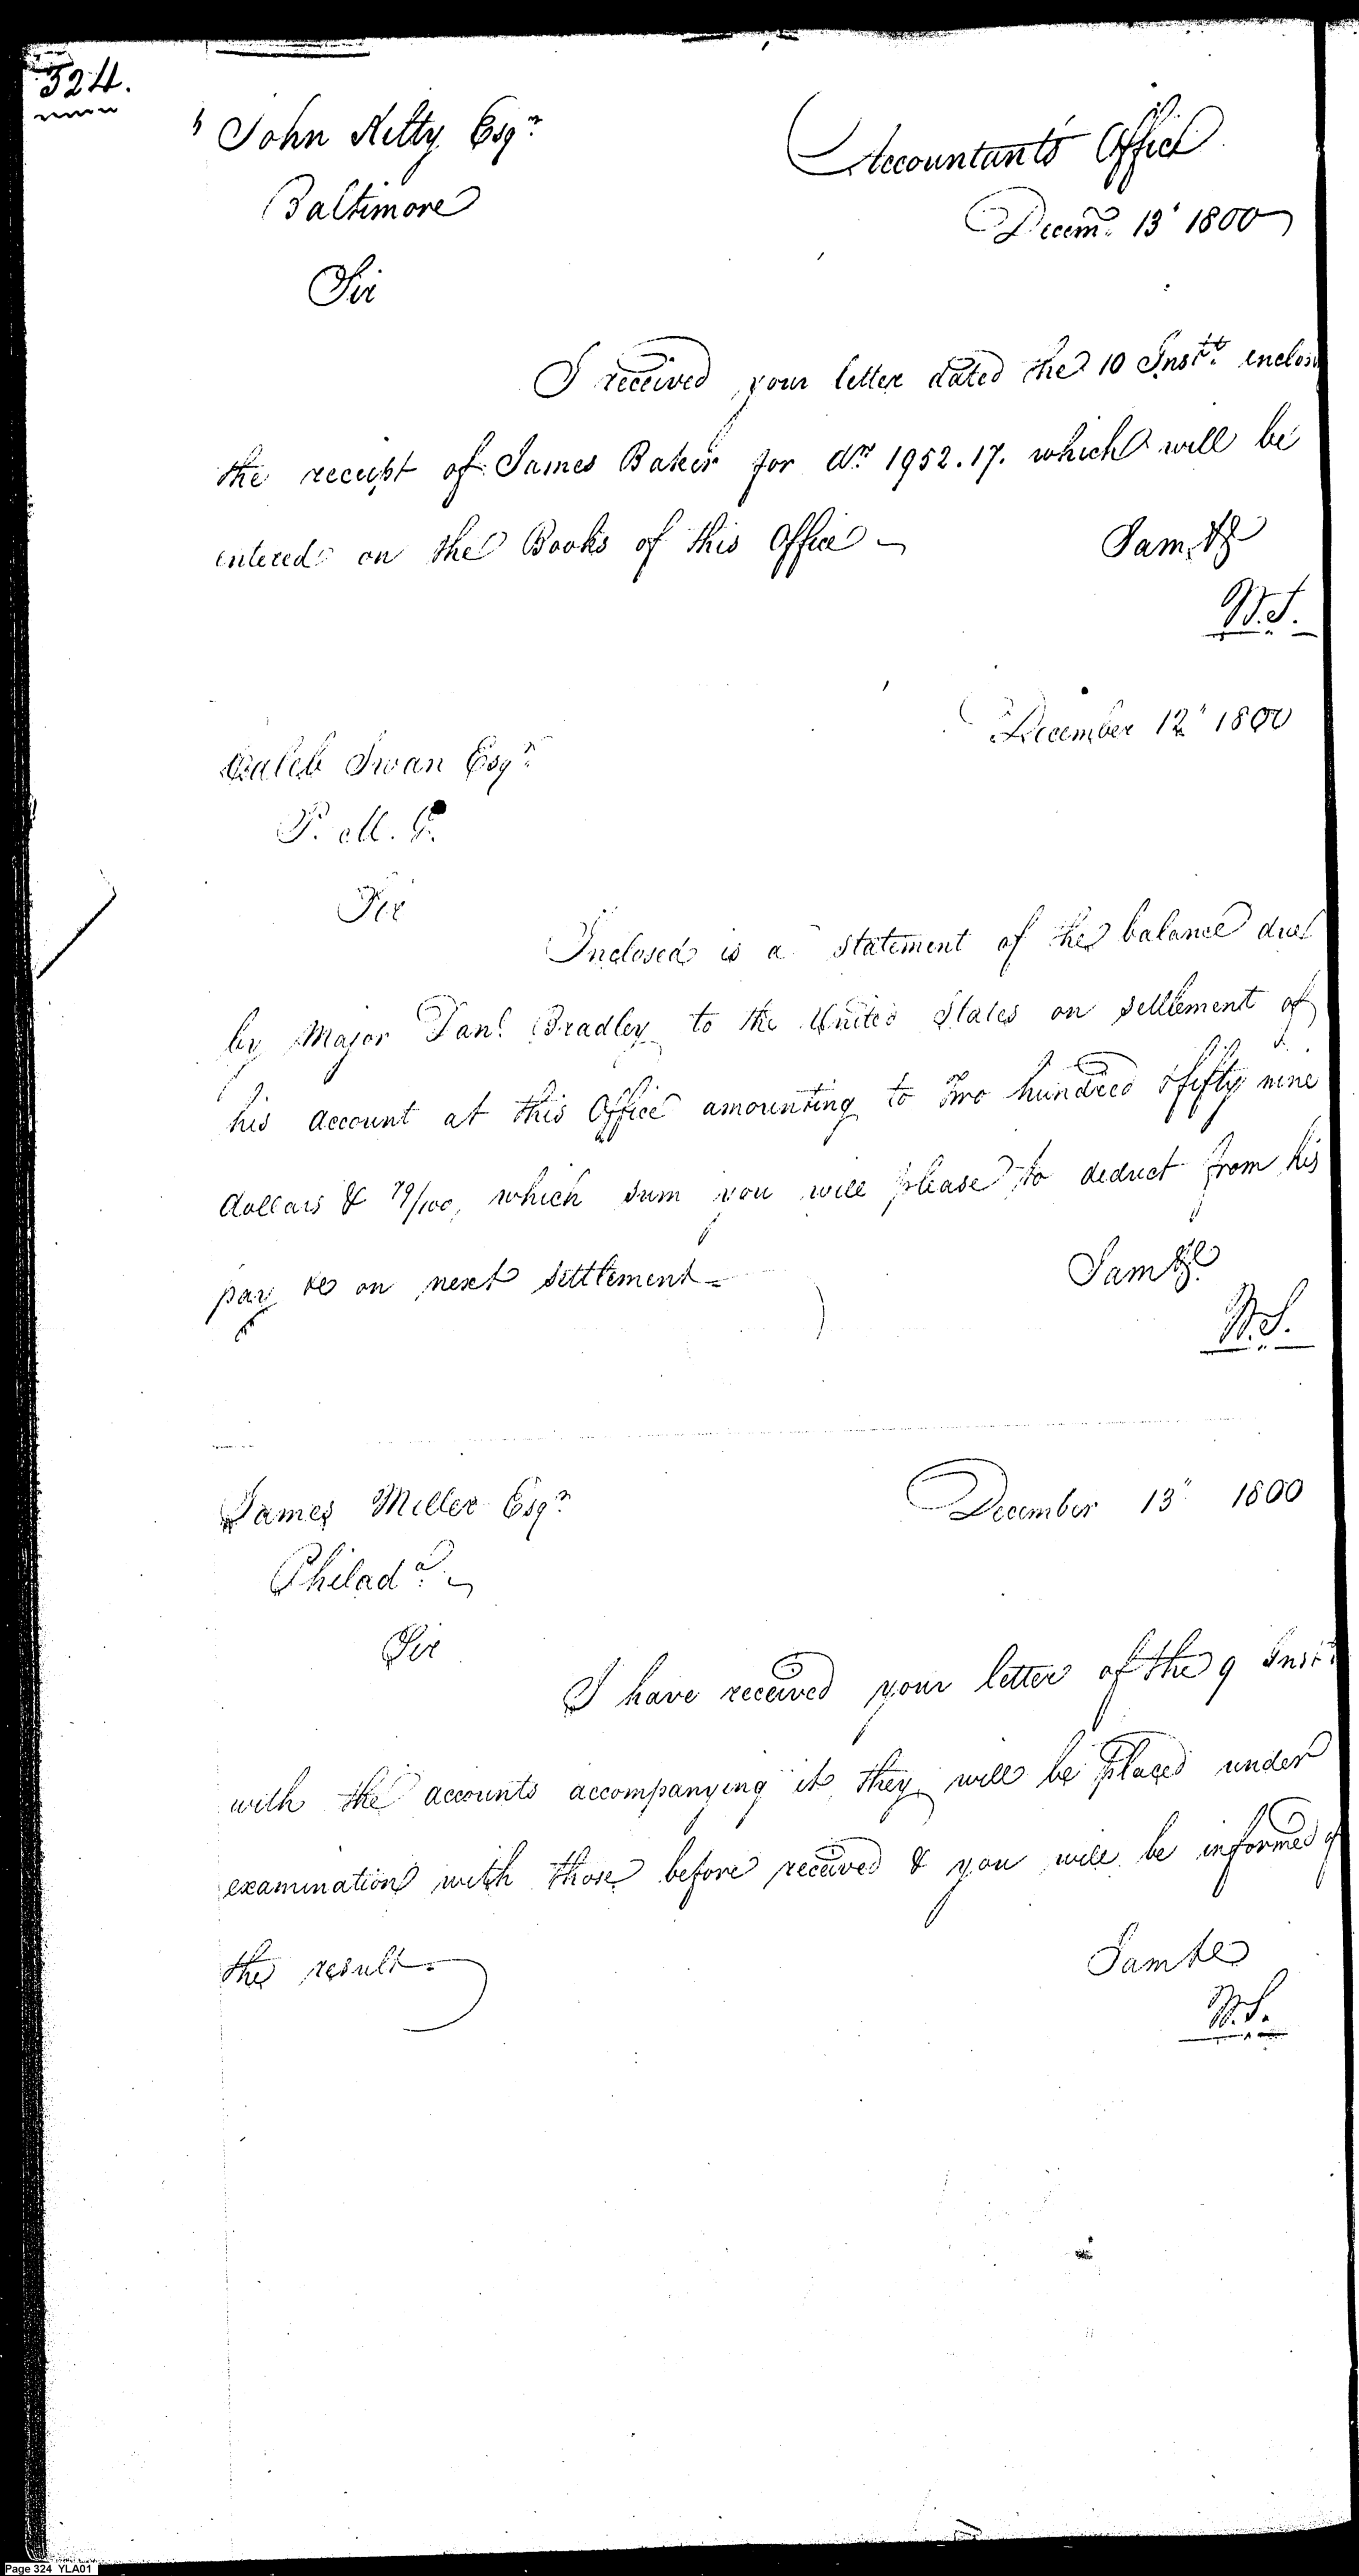 324.
John Kilty Esqr
Accountants Office
Baltimore
Decemr. 13" 1800
Sir
I received your letter dated the 10 Instt. enclos
the receipt of James Baker for drs 1952.17. which will be
entered on the Books of this Office
I am &c
W.S.
December 12" 1800
Caleb Swan Esqr.
P. M. G.
Sir
Inclosed is a statement of the balance due
by Major Danl. Bradley to the United States on settlement of
his account at this Office amounting to Two hundred & fifty nine
dollars & 79/100, which sum you will please to deduct from his
pay &c on next settlement
I am &c
W.S.
James Miller Esqr.
December 13" 1800
Philada.
Sir
I have received your letter of the 9 Inst.
with the accounts accompanying it they will be placed under
examination with those before received & you will be informed of
the result.
I am &c
W.S.
Page 324 YLA01